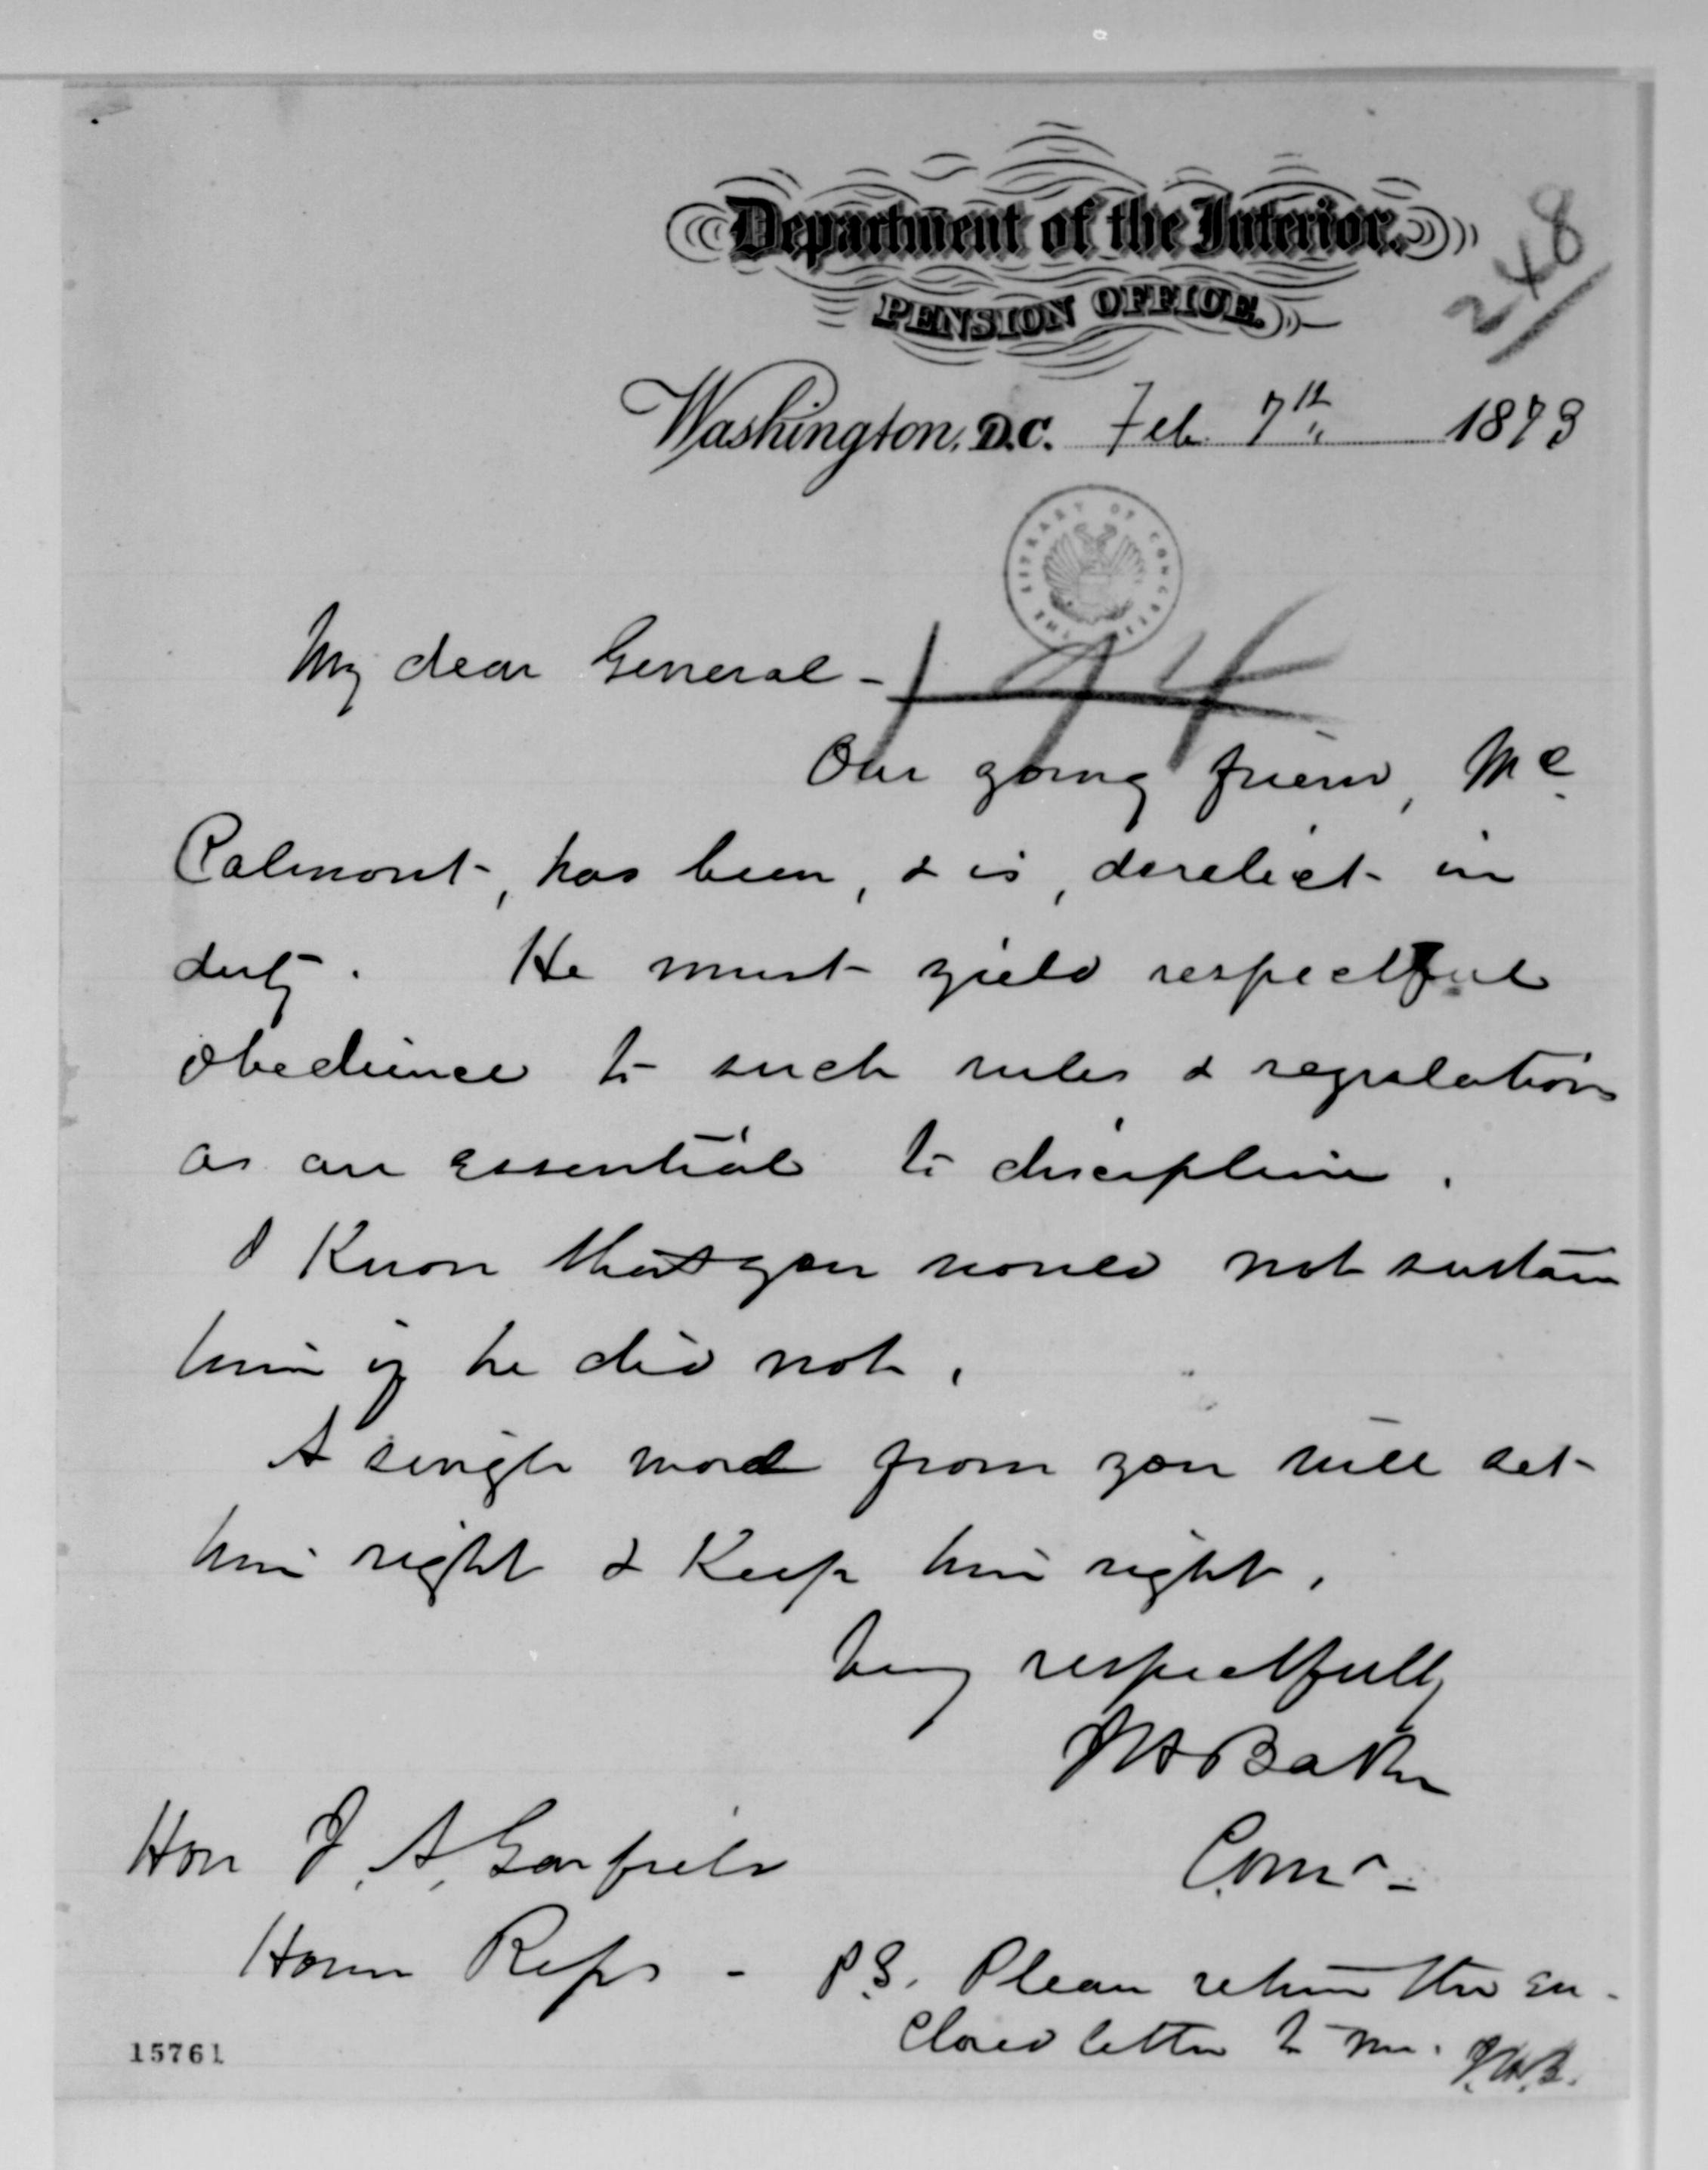 Department of the Interior.
PENSION OFFICE.
248
Washington, D.C. Feb. 7th 1873
THE LIBRARY OF CONGRESS
My dear General -
194
Our young friend, Mc
Calmont, has been, & is, derelict in
duty. He must yield respectful
obedience to such rules & regulations
as are essential to discipline.
I Know that you would not sustain
him if he did not.
A single word from you will set
him right & Keep him right.
Very respectfully
J H Baker
Comr -
Hon J. A. Garfield
House Reps -
P.S. Please return the en-
closed letter to me. J.H.B.
15761